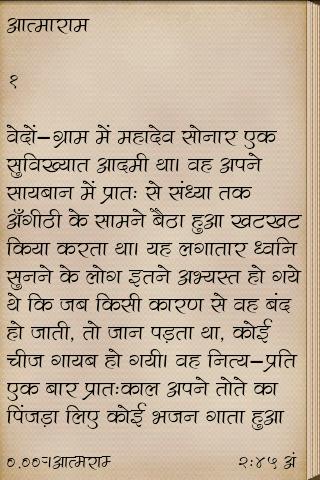 आत्माराम
१
वेदों–ग्राम में महादेव सोनार एक
सुविख्यात आदमी था। वह अपने
सायबान में प्रातः से संध्या तक
अँगीठी के सामने बैठा हुआ खटखट
किया करता था। यह लगातार ध्वनि
सुनने के लोग इतने अभ्यस्त हो गये
थे कि जब किसी कारण से वह बंद
हो जाती, तो जान पड़ता था, कोई
चीज गायब हो गयी। वह नित्य–प्रति
एक बार प्रातःकाल अपने तोते का
पिंजड़ा लिए कोई भजन गाता हुआ
आत्माराम २:४५ अं